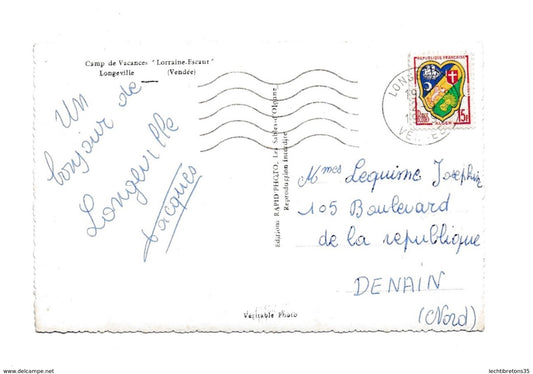 Camp de Vacances "Lorraine-Escaut"
Longeville (Vendée)
Un
bonjour de
Longeville
Jacques
Edition: RAPID'PHOTO, Les Sables-d'Olonne
Reproduction interdite
REPUBLIQUE FRANÇAISE
15F
ALGER
Mmes Lequime Josephine
105 Boulevard
de la republique
DENAIN
(Nord)
Véritable Photo
www.delcampe.net
lechtibretons35